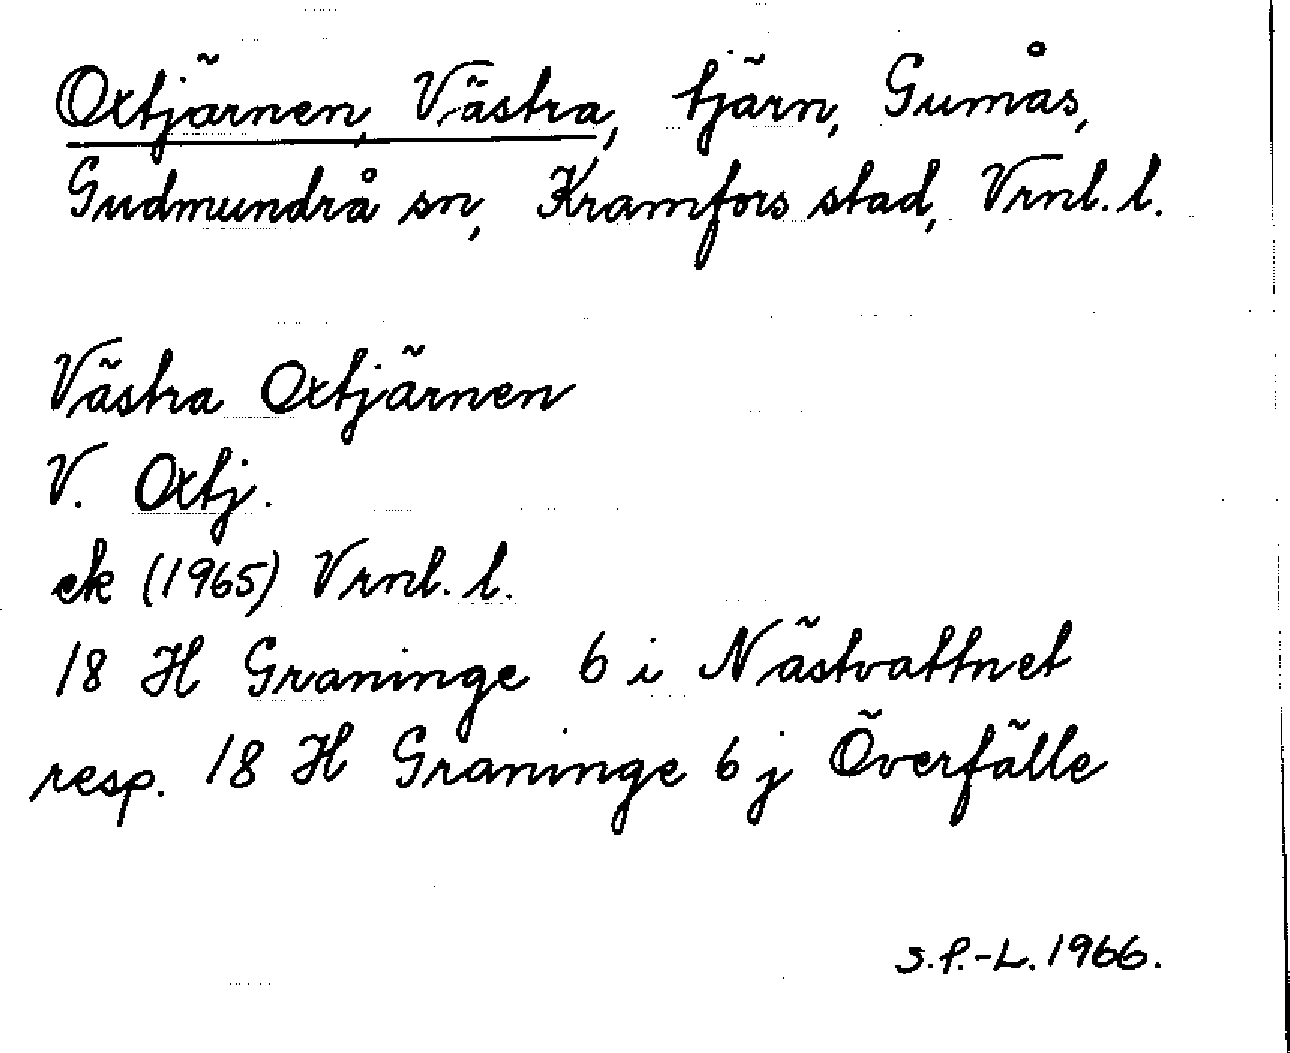 Oxtjärnen, Västra, tjärn, Gumås,
Gudmundrå sn, Kramfors stad, Vrnl. l.
Västra Oxtjärnen
V. Oxtj.
ek (1965) Vrnl. l.
18 H Graninge 6 i Nästvattnet
resp. 18 H Graninge 6 j Överfälle
S.P.-L. 1966.